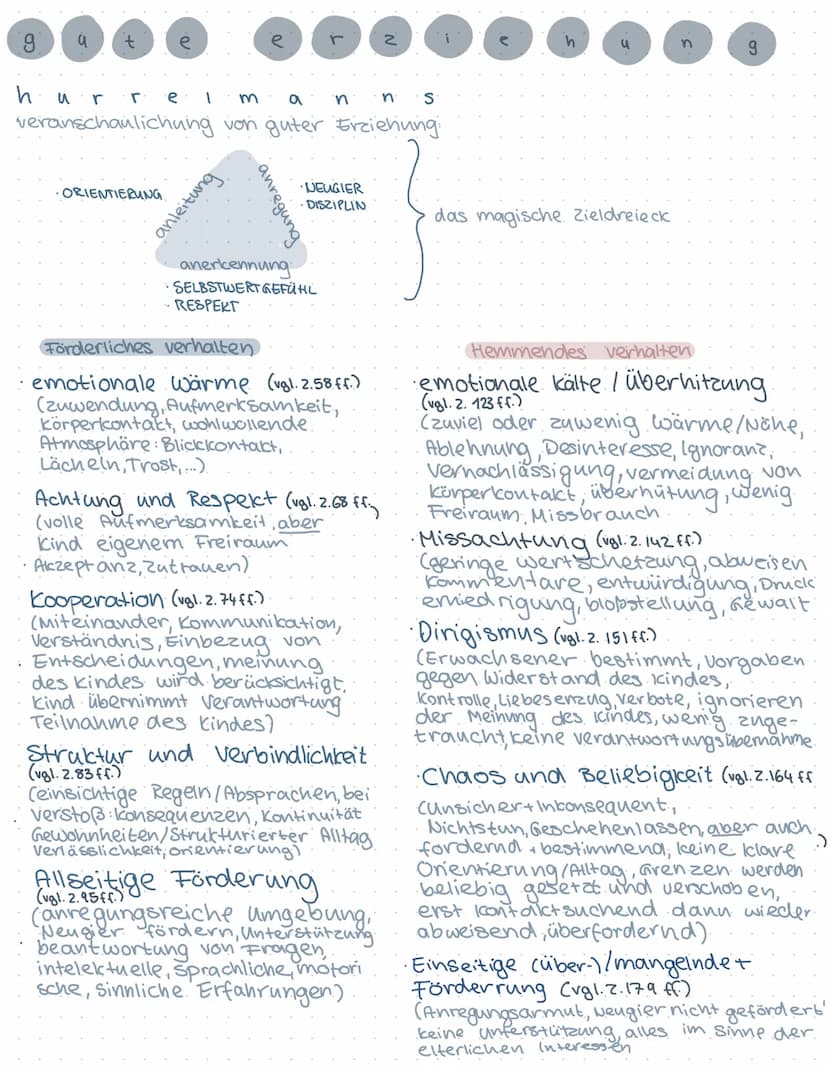 gute erziehung
hurrelmanns
veranschaulichung von guter Erziehung
· ORIENTIERUNG
anleitung
anregung
· NEUGIER
· DISZIPLIN
das magische Zieldreieck
anerkennung
· SELBSTWERTGEFÜHL
· RESPEKT
Förderliches verhalten
· emotionale wärme (vgl. 2.58ff.)
(zuwendung, Aufmerksamkeit,
körperkontakt, wohlwollende
Atmosphäre: Blickkontakt,
Lächeln, Trost,...)
Achtung und Respekt (vgl. 2.68 ff.)
(volle Aufmerksamkeit, aber
kind eigenem Freiraum
· Akzeptanz, zutrauen)
Kooperation (vgl. 2.74ff.)
(Miteinander, Kommunikation,
Verständnis, Einbezug von
· Entscheidungen, meinung
des kindes wird berücksichtigt,
kind übernimmt verantwortung
Teilnahme des kindes)
Struktur und verbindlichkeit
(vgl. 2.83ff.)
(einsichtige Regeln/Absprachen, bei
· verstoß: konsequenzen, kontinuität
Gewohnheiten/strukturierter Alltag
verlässlichkeit, orientierung)
Allseitige Förderung
(vgl. 2.95ff.)
(anregungsreiche umgebung,
Neugier fördern, unterstützung
· beantwortung von Fragen,
intelektuelle, sprachliche, motori
sche, sinnliche Erfahrungen)
Hemmendes verhalten
· emotionale kälte / überhitzung
(vgl. 2. 123 ff.)
(zuviel oder zuwenig wärme/Nähe,
Ablehnung, Desinteresse, Ignoranz,
vernachlässigung, vermeidung von
körperkontakt, überhütung, wenig
Freiraum, Missbrauch
· Missachtung (vgl. 2.142 ff.)
(geringe wertschetzung, abweisen
kommentare, entwürdigung, Druck
erniedrigung, bloßstellung, Gewalt
· Dirigismus (vgl. 2. 151 ff.)
(Erwachsener bestimmt, vorgaben
gegen widerstand des kindes,
kontrolle, Liebesenzug, verbote, ignorieren
der Meinung des kindes, wenig zuge-
traucht, keine verantwortungsübernahme
· Chaos und Beliebigkeit (vgl. 2.164 ff
(unsicher + inkonsequent,
Nichtstun, Geschehenlassen, aber auch
fordernd + bestimmend, keine klare )
Orientierung/Alltag, Grenzen werden
beliebig gesetzt und verschoben,
erst kontaktsuchend dann wieder
abweisend, überfordernd)
· Einseitige (über-)/mangelnde +
Förderrung (vgl. 2.179 ff.)
(Anregungsarmut, Neugier nicht gefördert
keine unterstützung, alles im sinne der
elterlichen Interessen